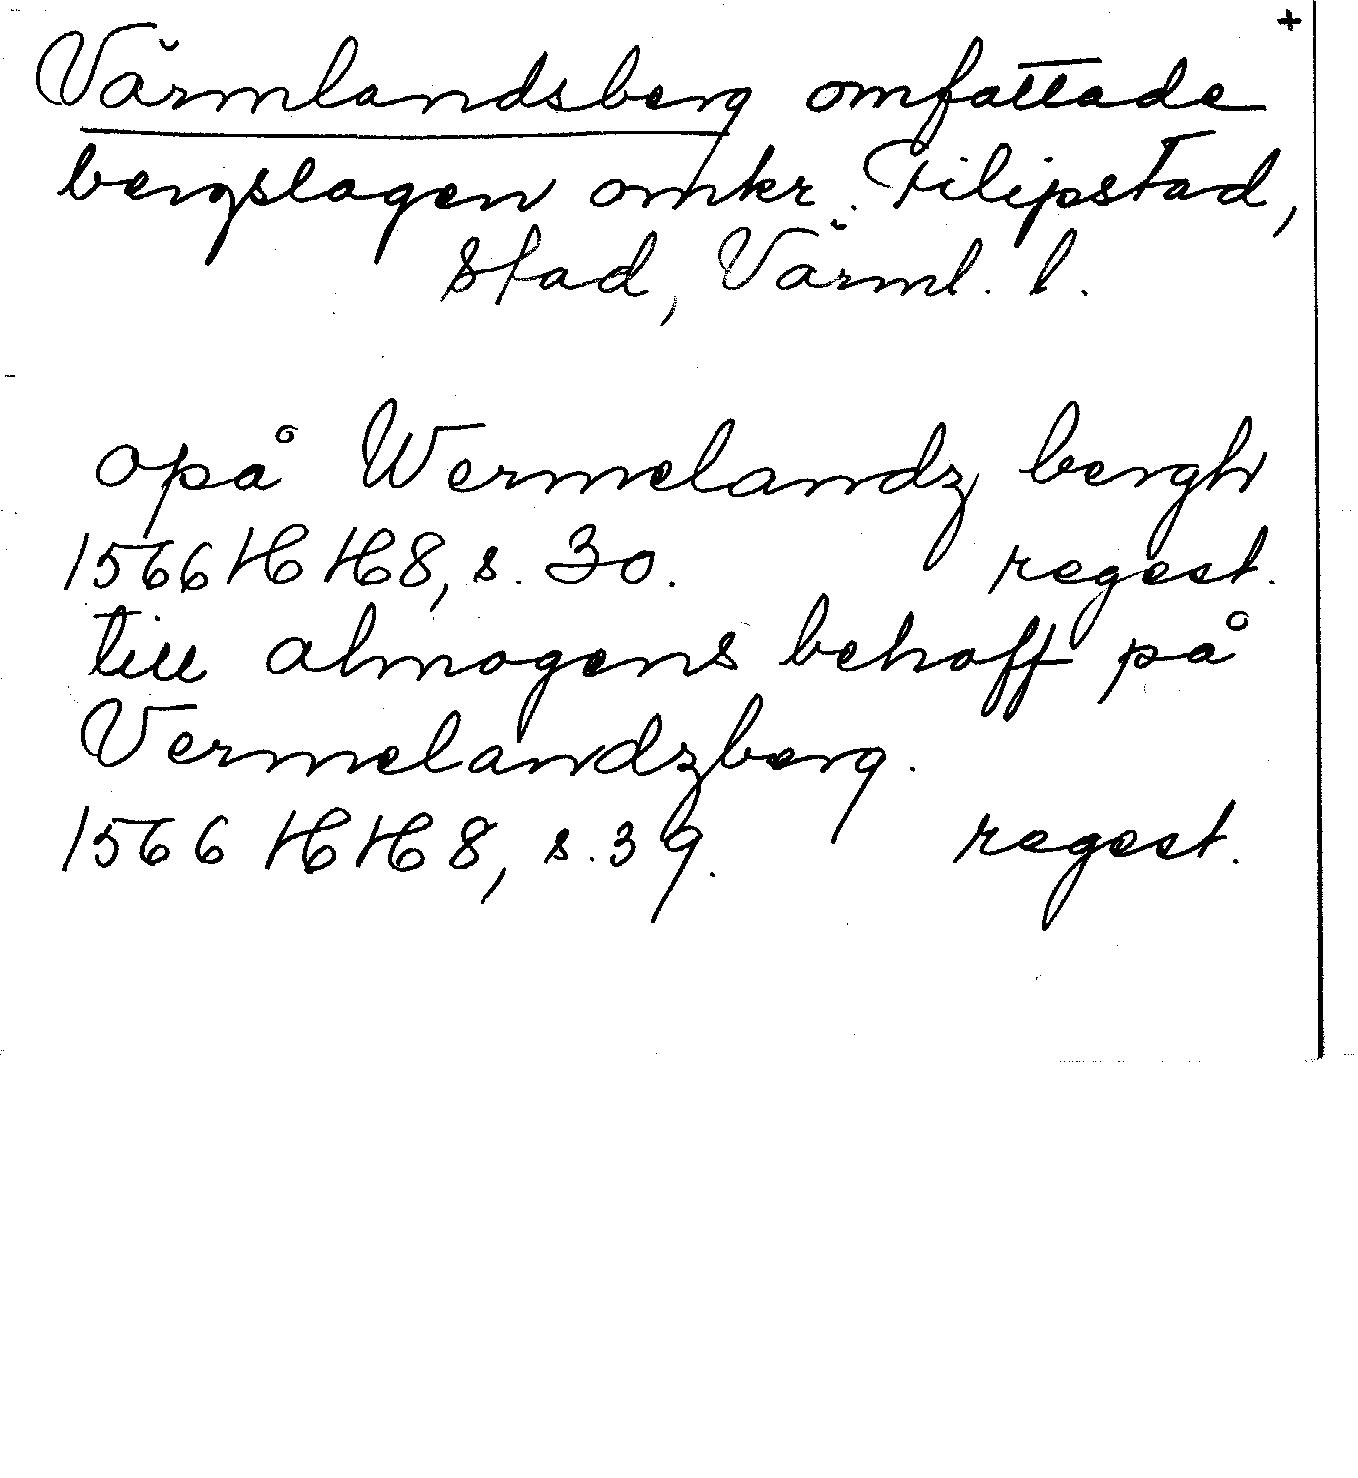 +
Värmlandsberg omfattade
bergslagen omkr. Filipstad,
stad, Värml. l.
opå Wermelandz bergh
1566 HH 8, s. 30. regest.
till almogens behoff på
Vermelandzberg.
1566 HH 8, s. 39. regest.